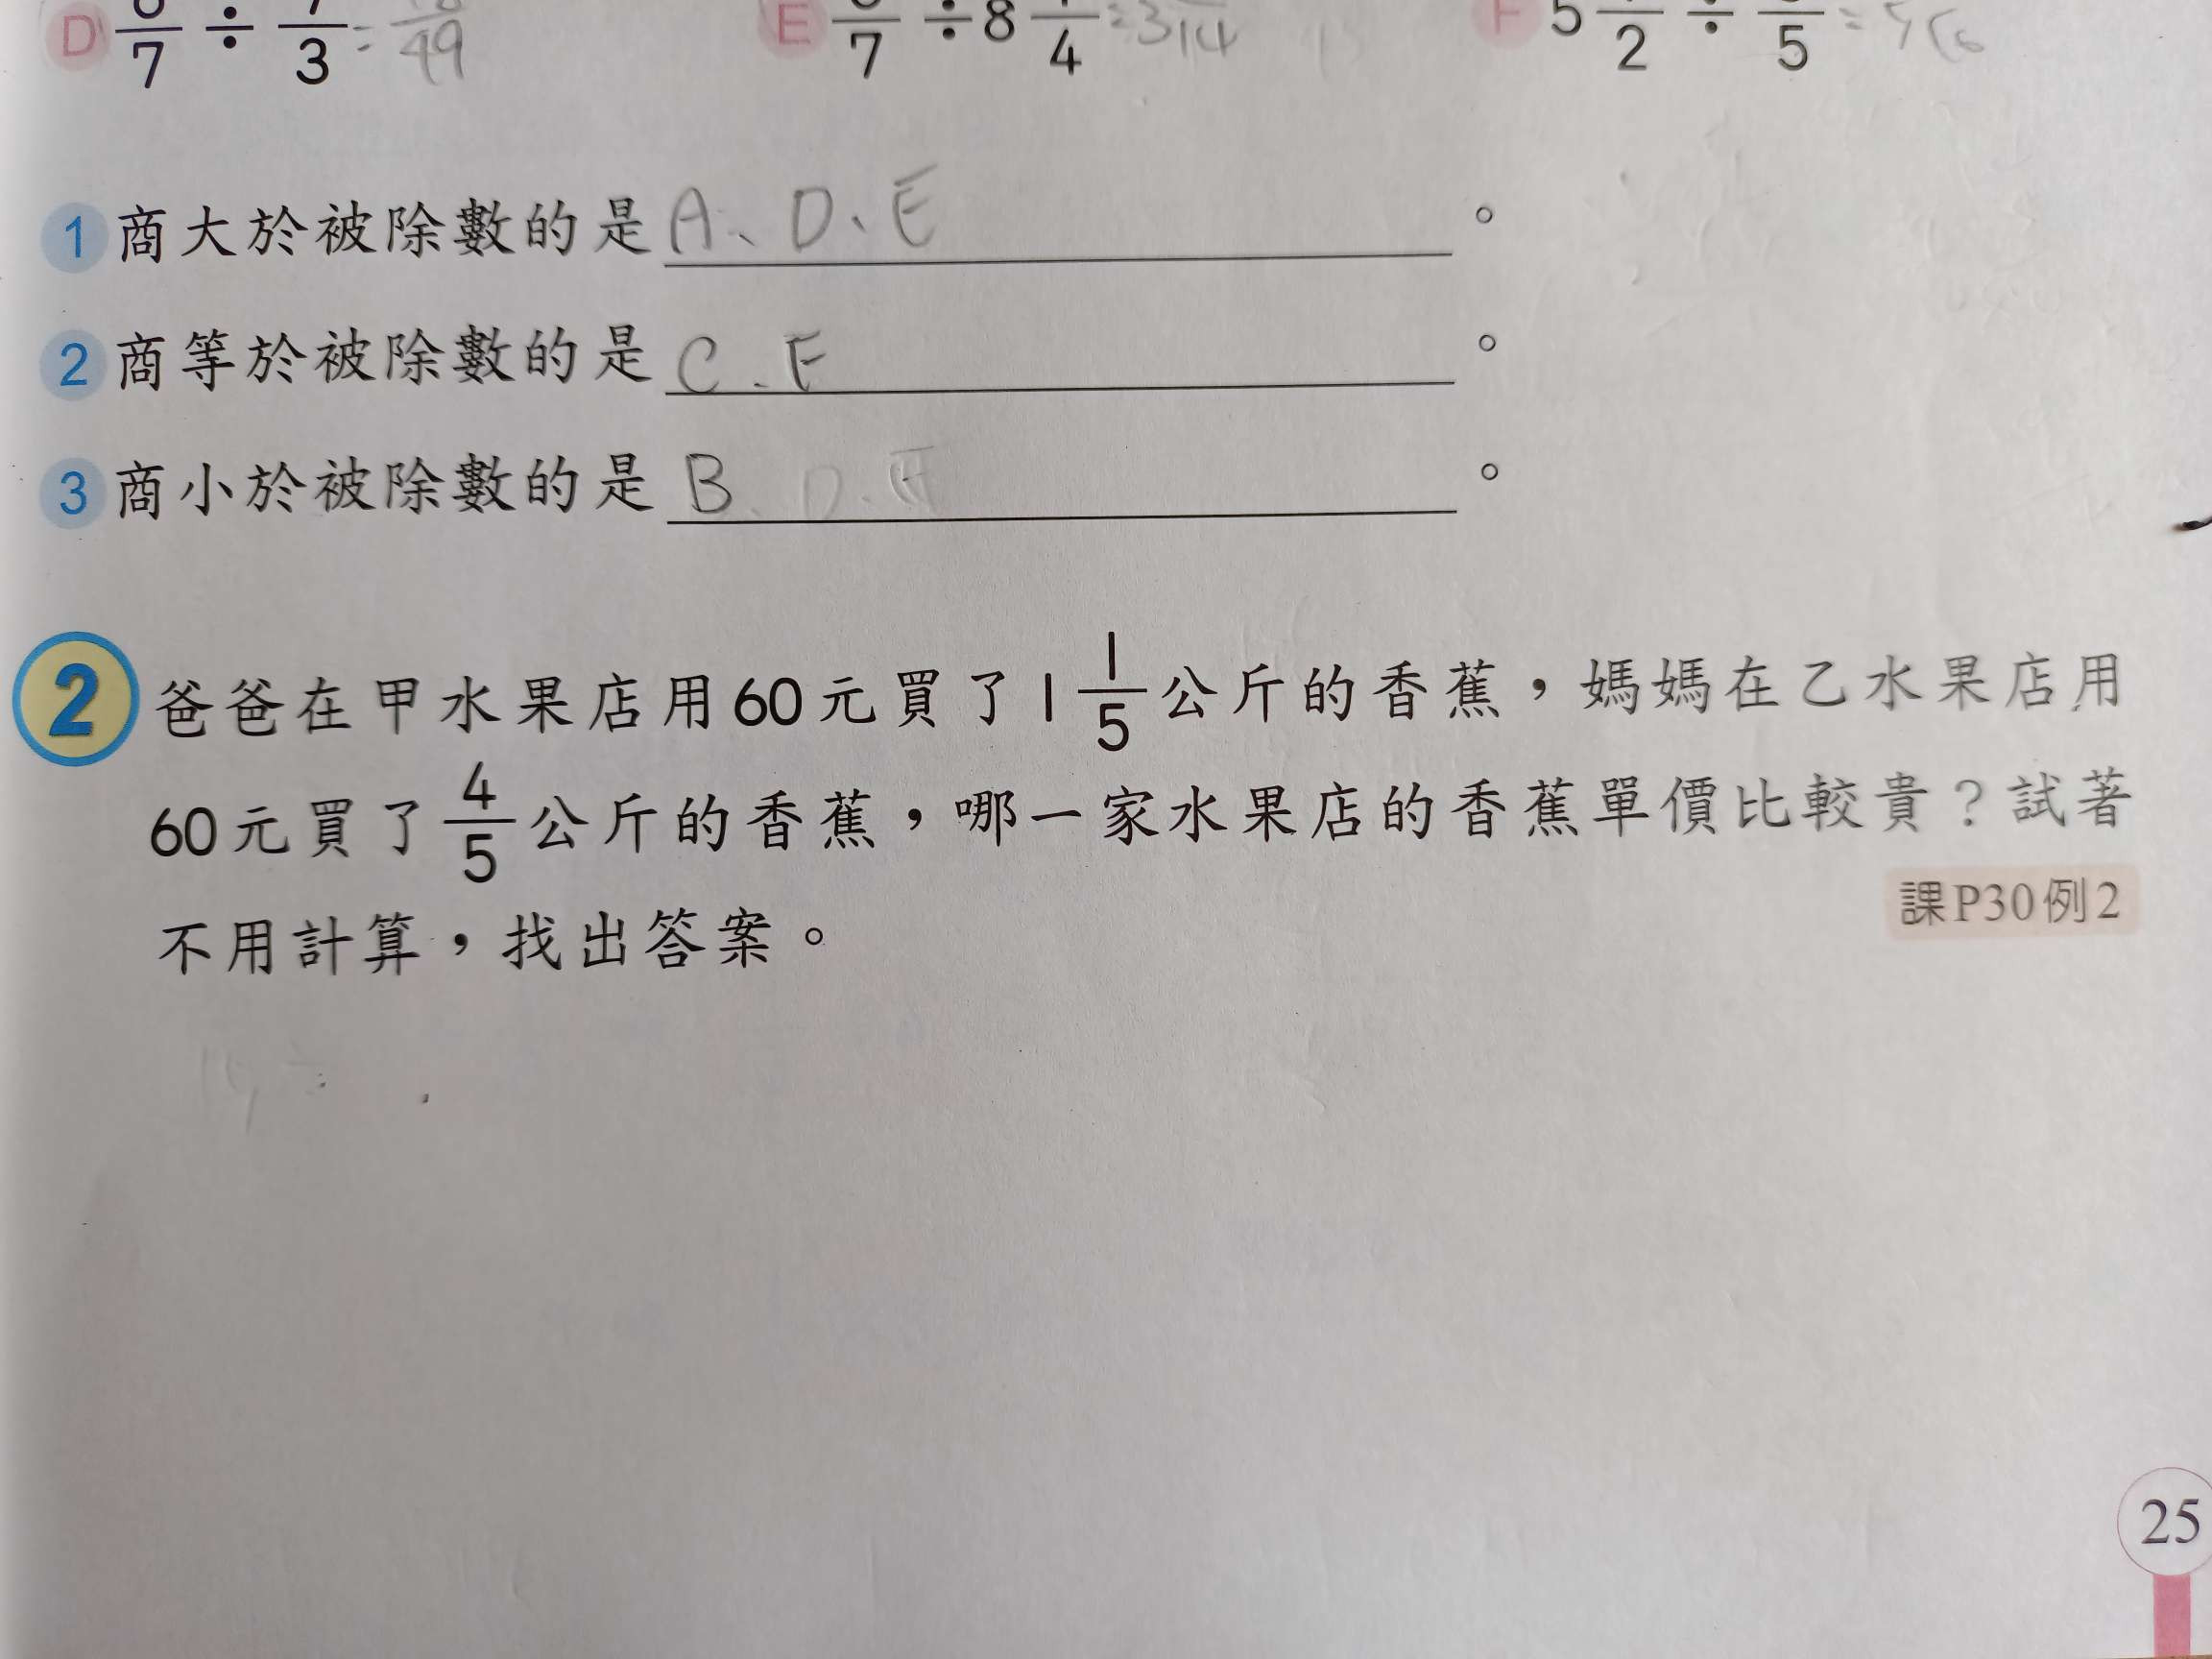 D 7 ÷ 3 = 49 E 7 ÷ 8 4 = 3 14 F 5 2 ÷ 5 =
1 商大於被除數的是 A、D、E 。
2 商等於被除數的是 C、F 。
3 商小於被除數的是 B、D、E 。
2 爸爸在甲水果店用60元買了1 1/5 公斤的香蕉，媽媽在乙水果店用
60元買了 4/5 公斤的香蕉，哪一家水果店的香蕉單價比較貴？試著
不用計算，找出答案。
課P30例2
25